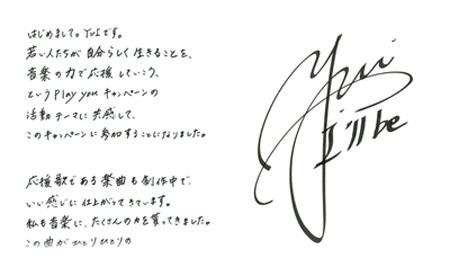 はじめまして。YUIです。
若い人たちが自分らしく生きることを、
音楽の力で応援していこう、
というPlay youキャンペーンの
活動テーマに共感して、
このキャンペーンに参加することになりました。
応援歌である楽曲も制作中で、
いい感じに仕上がってきています。
私も音楽に、たくさんの力を貰ってきました。
この曲がひとりひとりの
Yui
I'll be